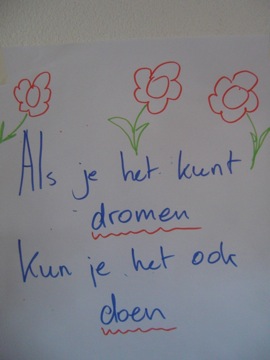 Als je het kunt
dromen
Kun je het ook
doen